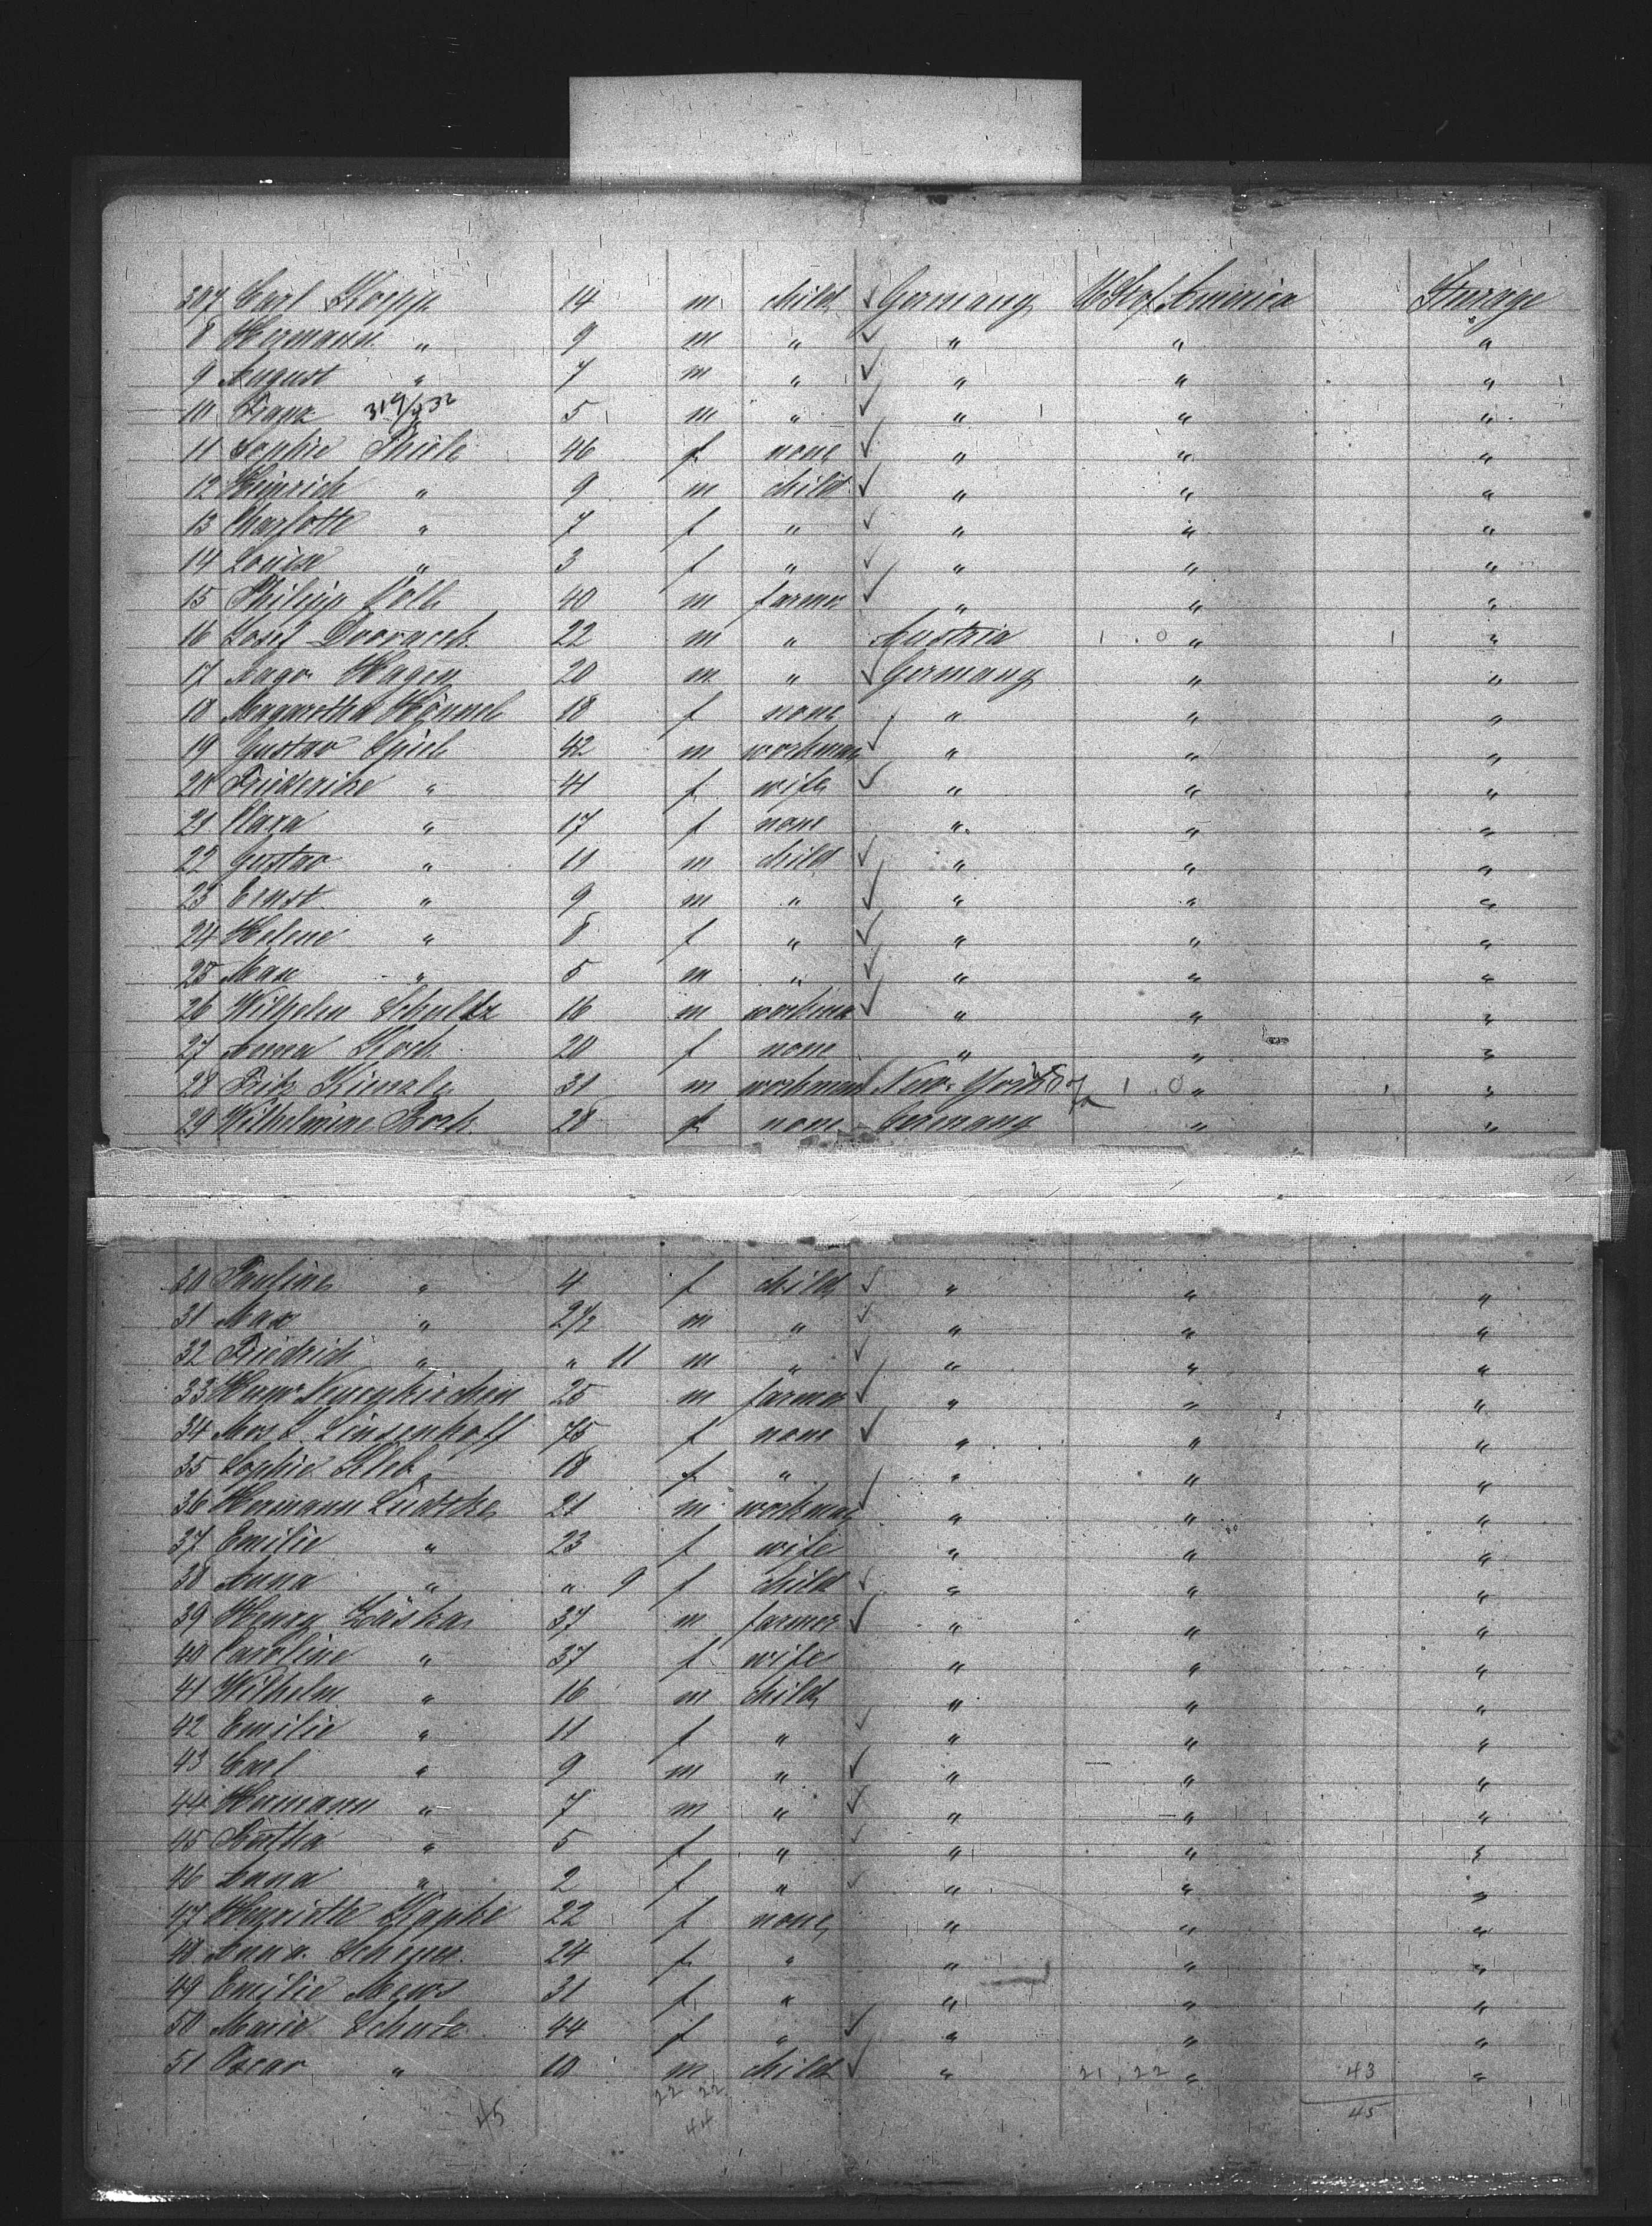 307 Carl Koepp 14 m child ✓ Germany USt of America Sterage
8 Hermann " 9 m " ✓ " " "
9 August " 7 m " ✓ " " "
10 Franz " 5 m " ✓ " " "
11 Sophie Thiele 46 f none ✓ " " "
12 Heinrich " 9 m child ✓ " " "
13 Charlotte " 7 f " ✓ " " "
14 Louise " 3 f " ✓ " " "
15 Philipp 40 m farmer ✓ " " "
16 Josef Dvoracek 22 m " Austria 1 . 0 " 1 "
17 Hagen 20 m " ✓ Germany " "
18 Margaretha 18 f none ✓ " " "
19 Gustav 42 m workman ✓ " " "
20 Friederike " 41 f wife ✓ " " "
21 Clara " 17 f none " " "
22 Gustav " 11 m child ✓ " " "
23 Ernst " 9 m " ✓ " " "
24 Helene " 8 f " ✓ " " "
25 Max " 5 m " ✓ " " "
26 Wilhelm Schultz 16 m workman ✓ " " "
27 Anna Koch 20 f none " " "
28 Fritz Kienzle 31 m workman New-York 1 . 0 " 1 "
29 Wilhelmine Bock 28 f none Germany " "
30 Pauline " 4 f child ✓ " " "
31 Max " 2 1/2 m " ✓ " " "
32 Friedrich " " 11 m " ✓ " " "
33 Herm. Neuenkirchen 25 m farmer ✓ " " "
34 Mos I. Linsenhoff 75 f none ✓ " " "
35 Sophie 18 f " " " "
36 Hermann Luedtke 21 m workman ✓ " " "
37 Emilie " 23 f wife " " "
38 Anna " " 9 f child ✓ " " "
39 Henry Zaska 37 m farmer ✓ " " "
40 Caroline " 37 f wife " " "
41 Wilhelm " 16 m child " " "
42 Emilie " 11 f " ✓ " " "
43 Carl " 9 m " ✓ " " "
44 Hermann " 7 m " ✓ " " "
45 " 5 f " ✓ " " "
46 Anna " 2 f " ✓ " " "
47 Henriette 22 f none " " "
48 Anna 24 f " " " "
49 Emilie Mews 31 f " " " "
50 Marie Schulz 44 f " ✓ " " "
51 Oscar " 10 m child ✓ " 21, 22 " 43 "
22 22 45
45 44